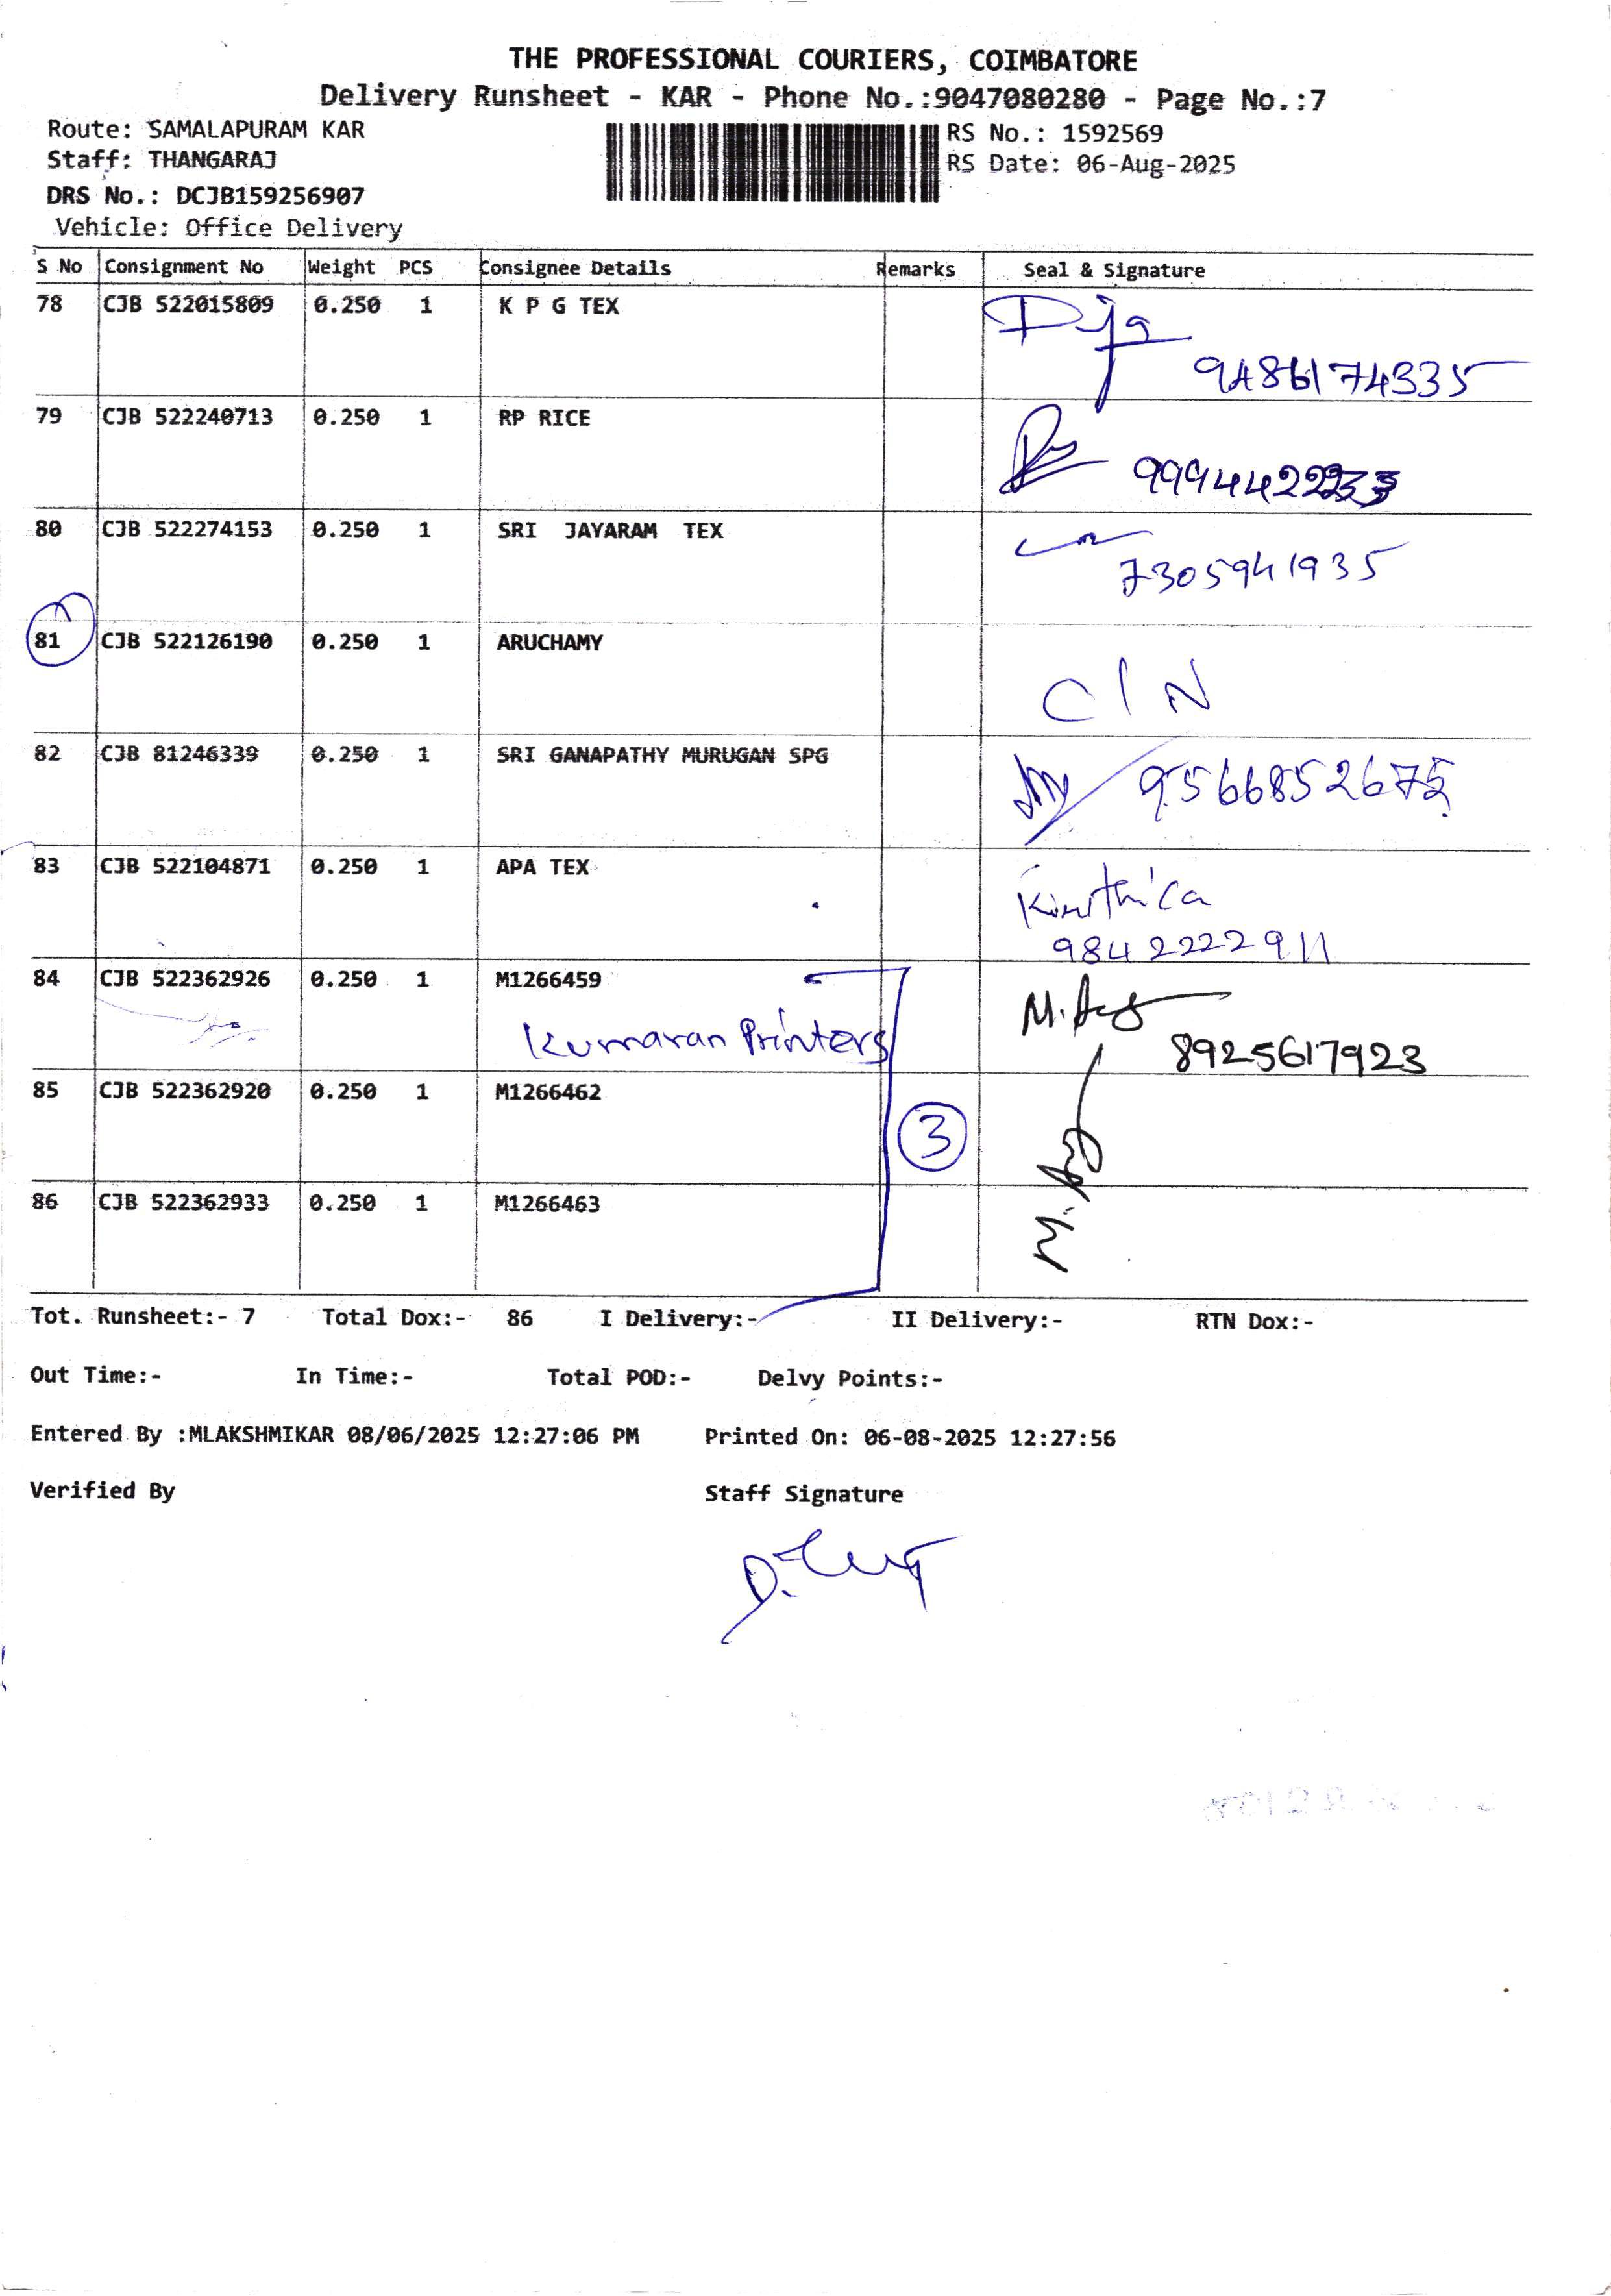 THE PROFESSIONAL COURIERS, COIMBATORE
Delivery Runsheet - KAR - Phone No.:9047080280 - Page No.:7
Route: SAMALAPURAM KAR
RS No.: 1592569
Staff: THANGARAJ
RS Date: 06-Aug-2025
DRS No.: DCJB159256907
Vehicle: Office Delivery
S No Consignment No Weight PCS Consignee Details Remarks Seal & Signature
78 CJB 522015809 0.250 1 K P G TEX
9486174335
79 CJB 522240713 0.250 1 RP RICE
80 CJB 522274153 0.250 1 SRI JAYARAM TEX
7305941935
81 CJB 522126190 0.250 1 ARUCHAMY
C/N
82 CJB 81246339 0.250 1 SRI GANAPATHY MURUGAN SPG
9566852675
83 CJB 522104871 0.250 1 APA TEX
9842222911
84 CJB 522362926 0.250 1 M1266459
Kumaran Printers
8925617923
85 CJB 522362920 0.250 1 M1266462
3
86 CJB 522362933 0.250 1 M1266463
Tot. Runsheet:- 7 Total Dox:- 86 I Delivery:- II Delivery:- RTN Dox:-
Out Time:- In Time:- Total POD:- Delvy Points:-
Entered By :MLAKSHMIKAR 08/06/2025 12:27:06 PM Printed On: 06-08-2025 12:27:56
Verified By Staff Signature